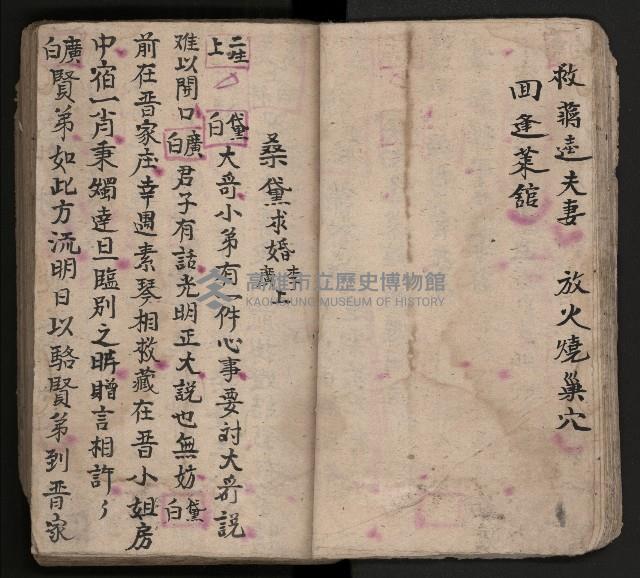 救蔣逵夫妻 放火燒巢穴
回逢萊舘
桑黛求婚 李廣上
二生上 黛白 大哥小弟有一件心事要討大哥說
难以開口 廣白 君子有話光明正大説也無妨 黛白
前在晋家庄幸遇素琴相救藏在晋小姐房
中宿一肖秉燭達旦臨別之時贈言相許
廣白 賢弟如此方流明日以駱賢弟到晋家
高雄市立歷史博物館
KAOHSIUNG MUSEUM OF HISTORY